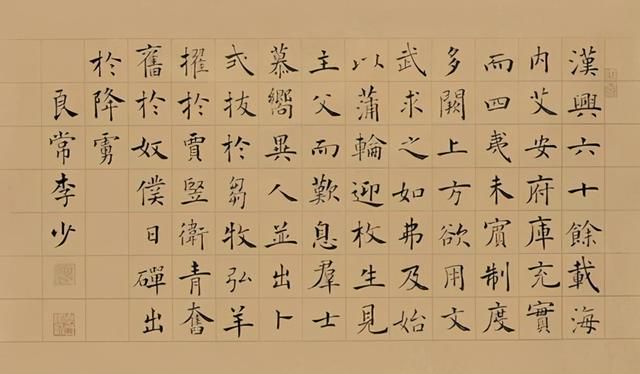 漢興六十餘載海
内艾安府庫充實
而四夷未賓制度
多闕上方欲用文
武求之如弗及始
以蒲輪迎枚生見
主父而歎息羣士
慕嚮異人並出卜
式拔於芻牧弘羊
擢於賈竪衛青奮
舊於奴僕日磾出
於降虜
良常李少